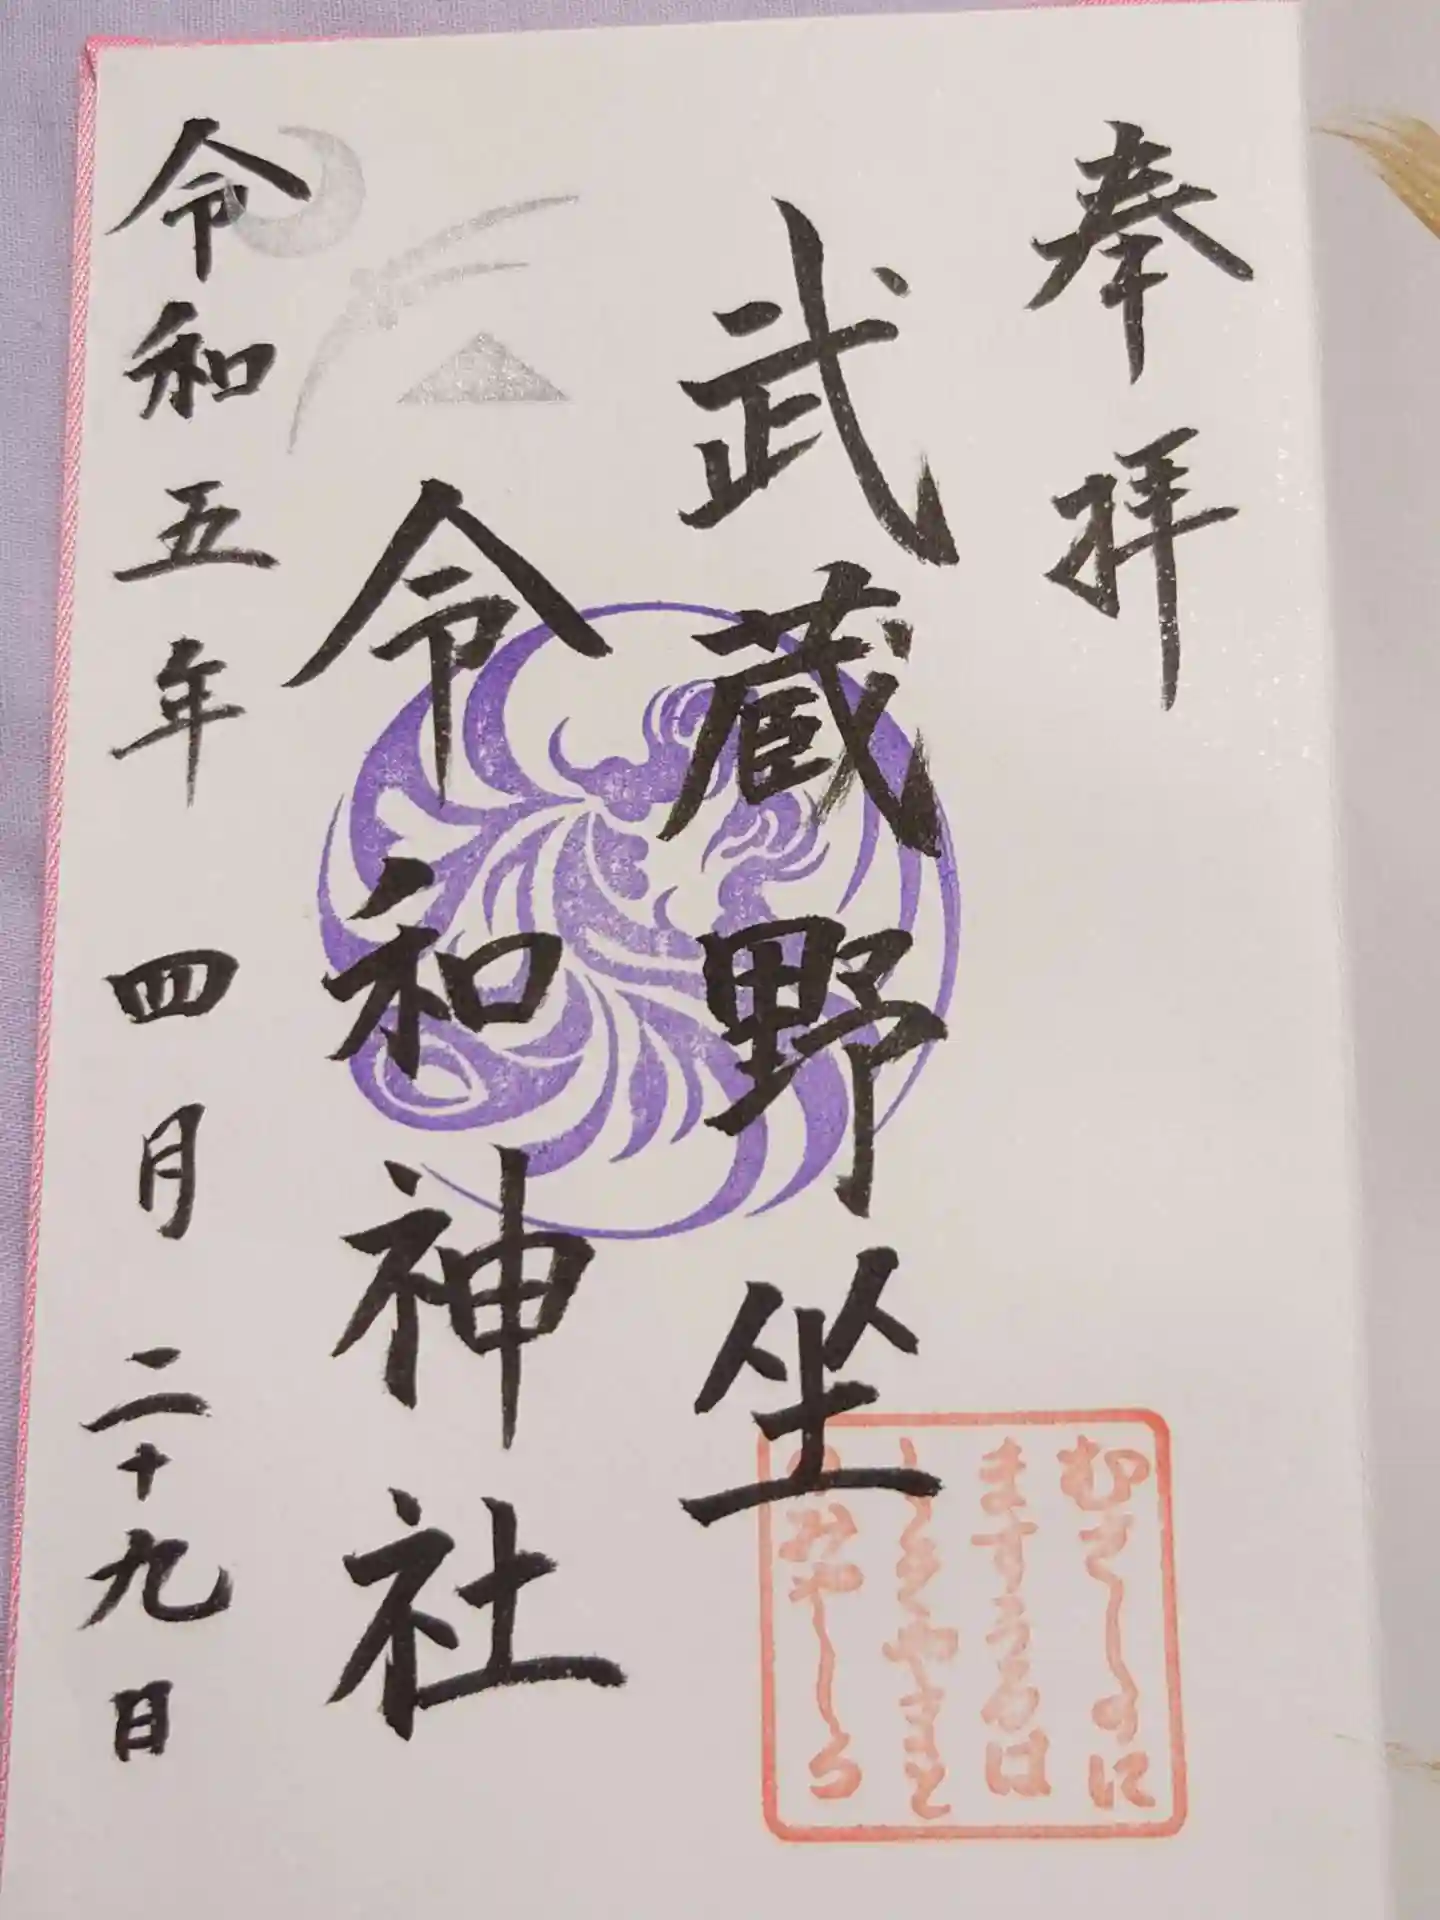 奉拝
武蔵野坐
令和神社
令和五年四月二十九日
むさしのに
ますうるは
しきやまと
のみやしろ